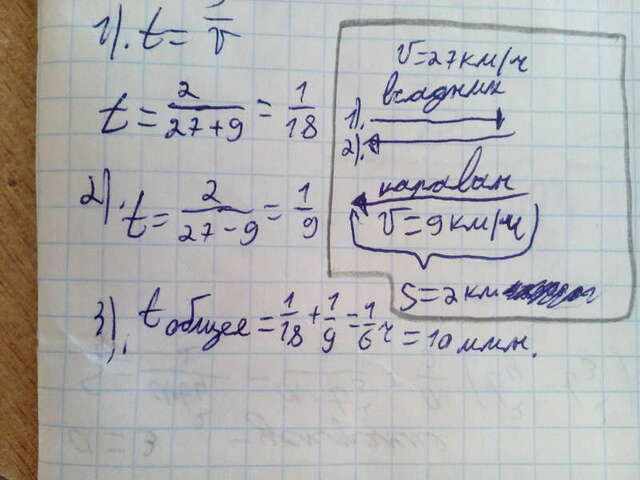 1). t = S/v
t = 2/(27+9) = 1/18
2). t = 2/(27-9) = 1/9
3). t общее = 1/18 + 1/9 = 1/6 ч = 10 мин.
v=27км/ч
всадник
1).
2).
караван
v=9км/ч
S=2км